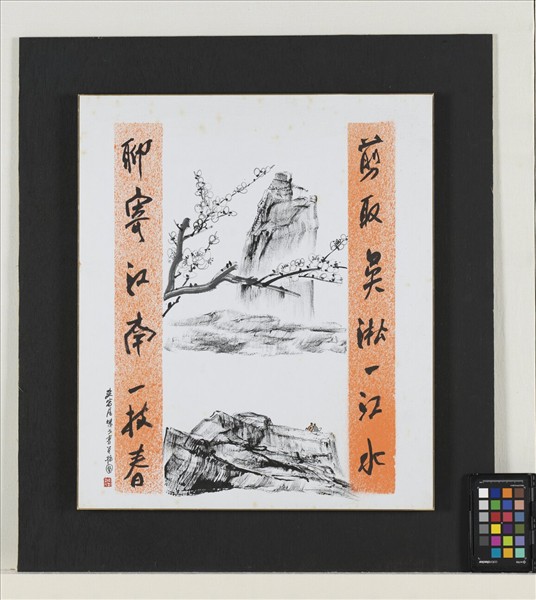 剪取吳淞一江水
聊寄江南一枝春